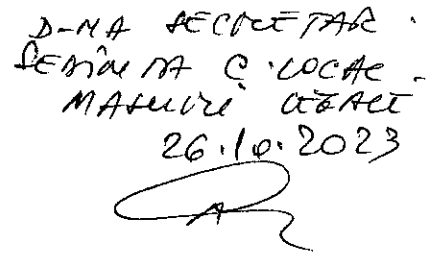 D-NA SECRETAR.
ȘEDINȚA C. LOCAL -
MĂSURI LEGALE
26.10.2023